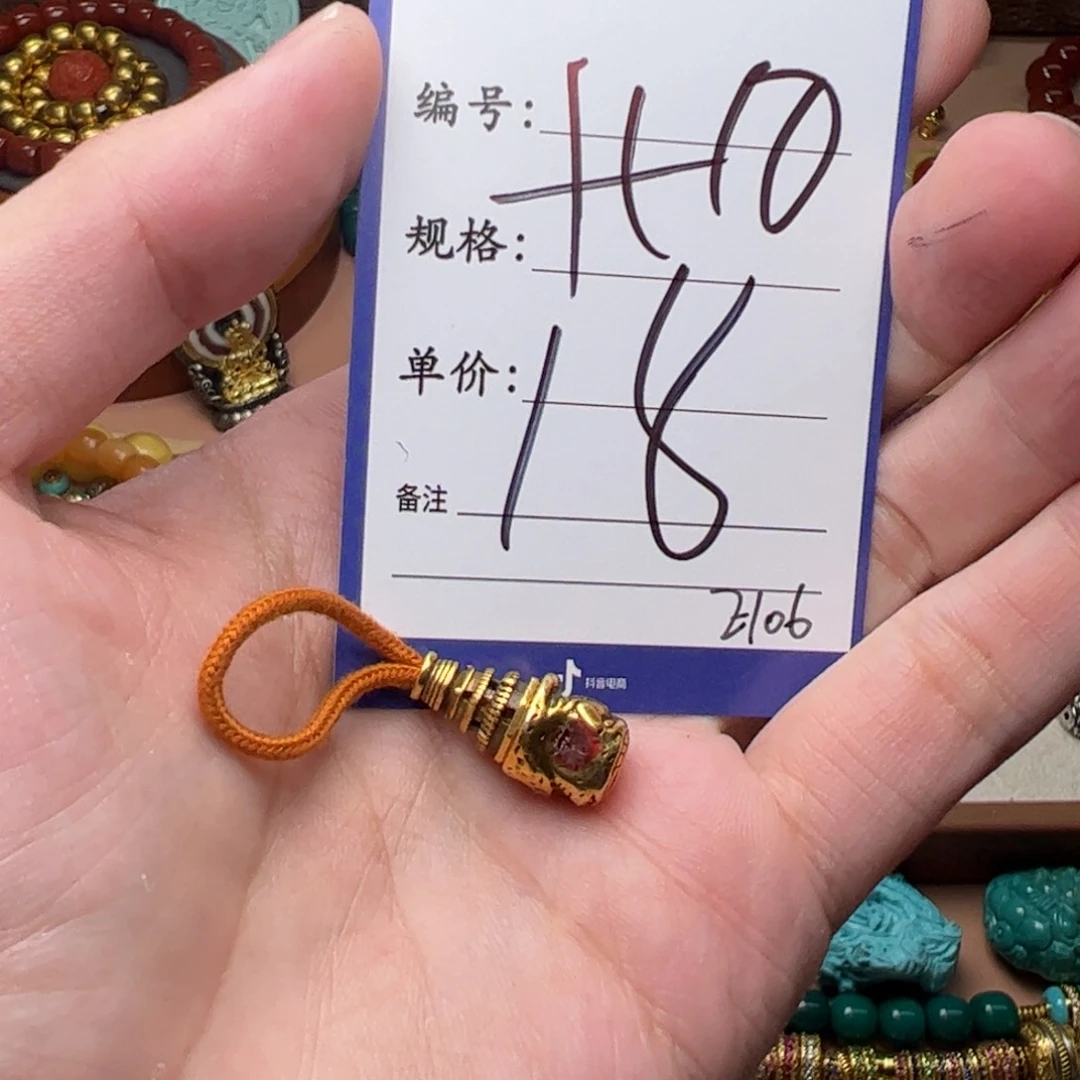 编号: H10
规格:
单价: 18
备注
2106
抖音电商